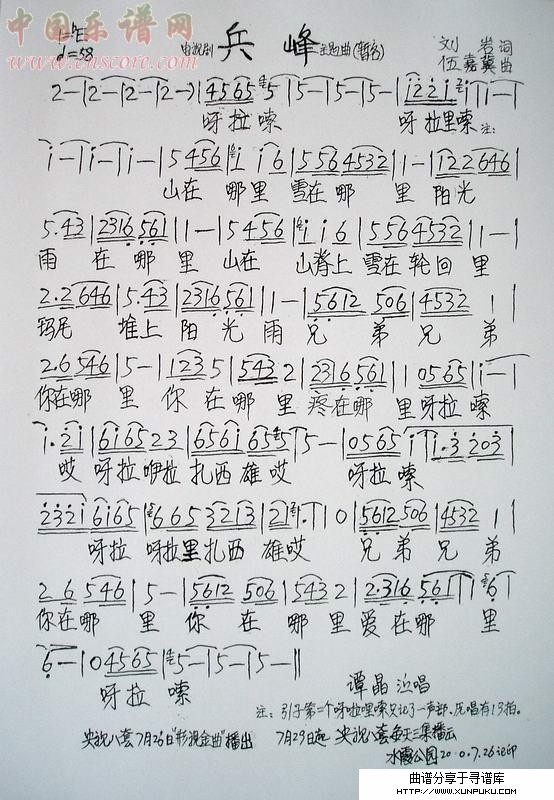 中国乐谱网
www.cnscore.com
1=♭E
♩=58
电视剧 兵峰 主题曲(暂名)
刘岩词
伍嘉冀曲
2-|2-|2-|2-|4565 5|5-|5-|5-|i22i i|i-|
呀拉嗦 呀拉里嗦 注:
i-|i-|i-|5 456|i i6|556 4532|1-|122 646|
山在 哪里 雪在哪 里 阳光
5.43|2316 561|1-|5 456|i i6|556 4532|1-|
雨 在哪里 山在 山脊上 雪在轮回里
2.2 646|5.43|2316 561|1-|5612 506|4532 1|
玛尼 堆上 阳光雨 兄弟兄弟
2.6 546|5-|123 5|543 2|2316 561|1 0565|i-|
你在哪 里 你在哪里 疼在哪 里呀拉 嗦
i.2i|6i65 23|656i 655|5-|0565|i i.3 203|
哎 呀拉咿拉 扎西雄哎 呀拉嗦
2321 6i65|665 3213|21 1.|1 0|5612 506|4532 1|
呀拉 呀拉里扎西 雄哎 兄弟兄弟
2 6 546|5-|5612 506|543 2|2.316 561|1 6|
你在哪 里 你在哪里爱在哪 里
6-|0 4565|5-|5-|5-‖
呀拉 嗦
谭晶 演唱
注:引子第二个呀拉哩嗦只记了一声部、伍唱有13拍。
央视八套7月26日"影视金曲"播出 7月29日起 央视八套每天三集播出
水霞公园2010.7.26记印
曲谱分享于寻谱库
www.xunpuku.com